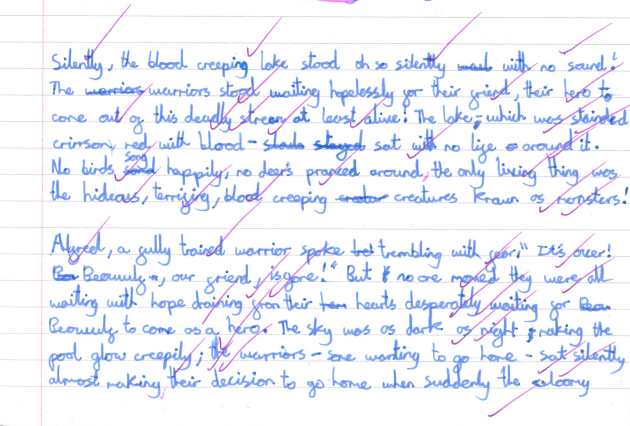 Silently, the blood creeping lake stood oh so silently with no sound!
The warriors warriors stood waiting hopelessly for their friend, their hero to
come out of this deadly stream at least alive! The lake, - which was stainded
crimson red with blood - stayed sat with no life around it.
No birds song happily, no deers pranced around, the only living thing was
the hideous, terrifing, blood creeping creatures known as monsters!
Alfred, a fully trained warrior spoke trembling with fear, " It's over!
Beowulf, our friend, is gone!" But no one moved they were all
waiting with hope draining from their hearts desperately waiting for
Beowulf to come as a hero. The sky was as dark as night ; making the
pool glow creepily; the warriors - some wanting to go home - sat silently
almost making their decision to go home when suddenly the gloomy